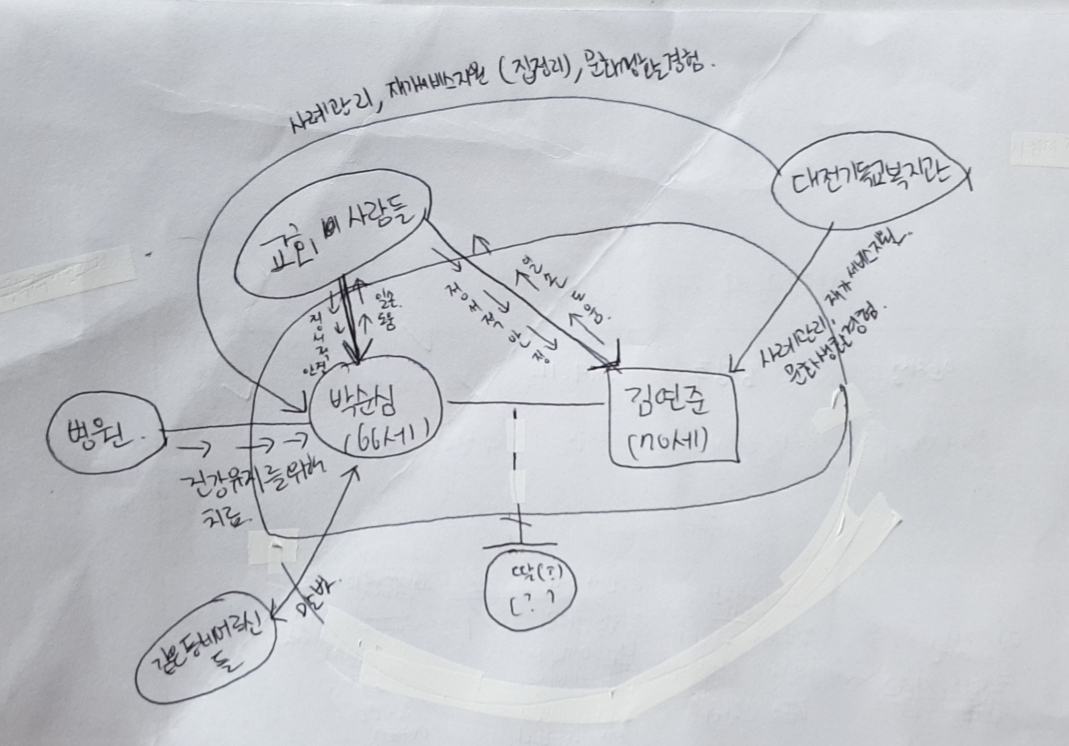 사례관리, 재가서비스지원 (집정리), 문화생활경험.
대전기독교복지관
교회 사람들
정서적
안정
일손
도움
정서적 안정
일손 도움.
사례관리, 재가서비스지원.
문화생활경험.
박순심
(66세)
김연준
(70세)
병원.
건강유지를위해
치료.
딸(?)
(??
말벗.
같은동네어르신
들